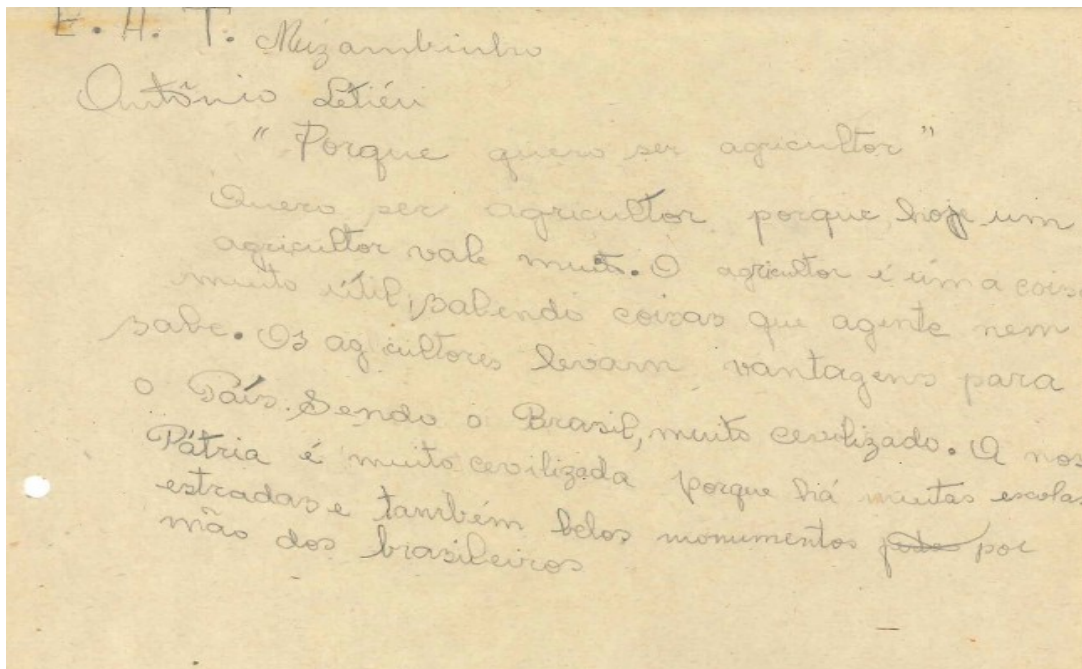 E. A. T. Muzambinho
Antônio Letiéri
"Porque quero ser agricultor"
Quero ser agricultor porque, hoje um
agricultor vale muito. O agricultor é uma cois
muito útil, sabendo coisas que agente nem
sabe. Os agicultores levam vantagens para
o País. Sendo o Brasil, muito cevilizado. A nos
Pátria é muito cevilizada porque há muitas escolas
estradas e também belos monumentos por
mão dos brasileiros